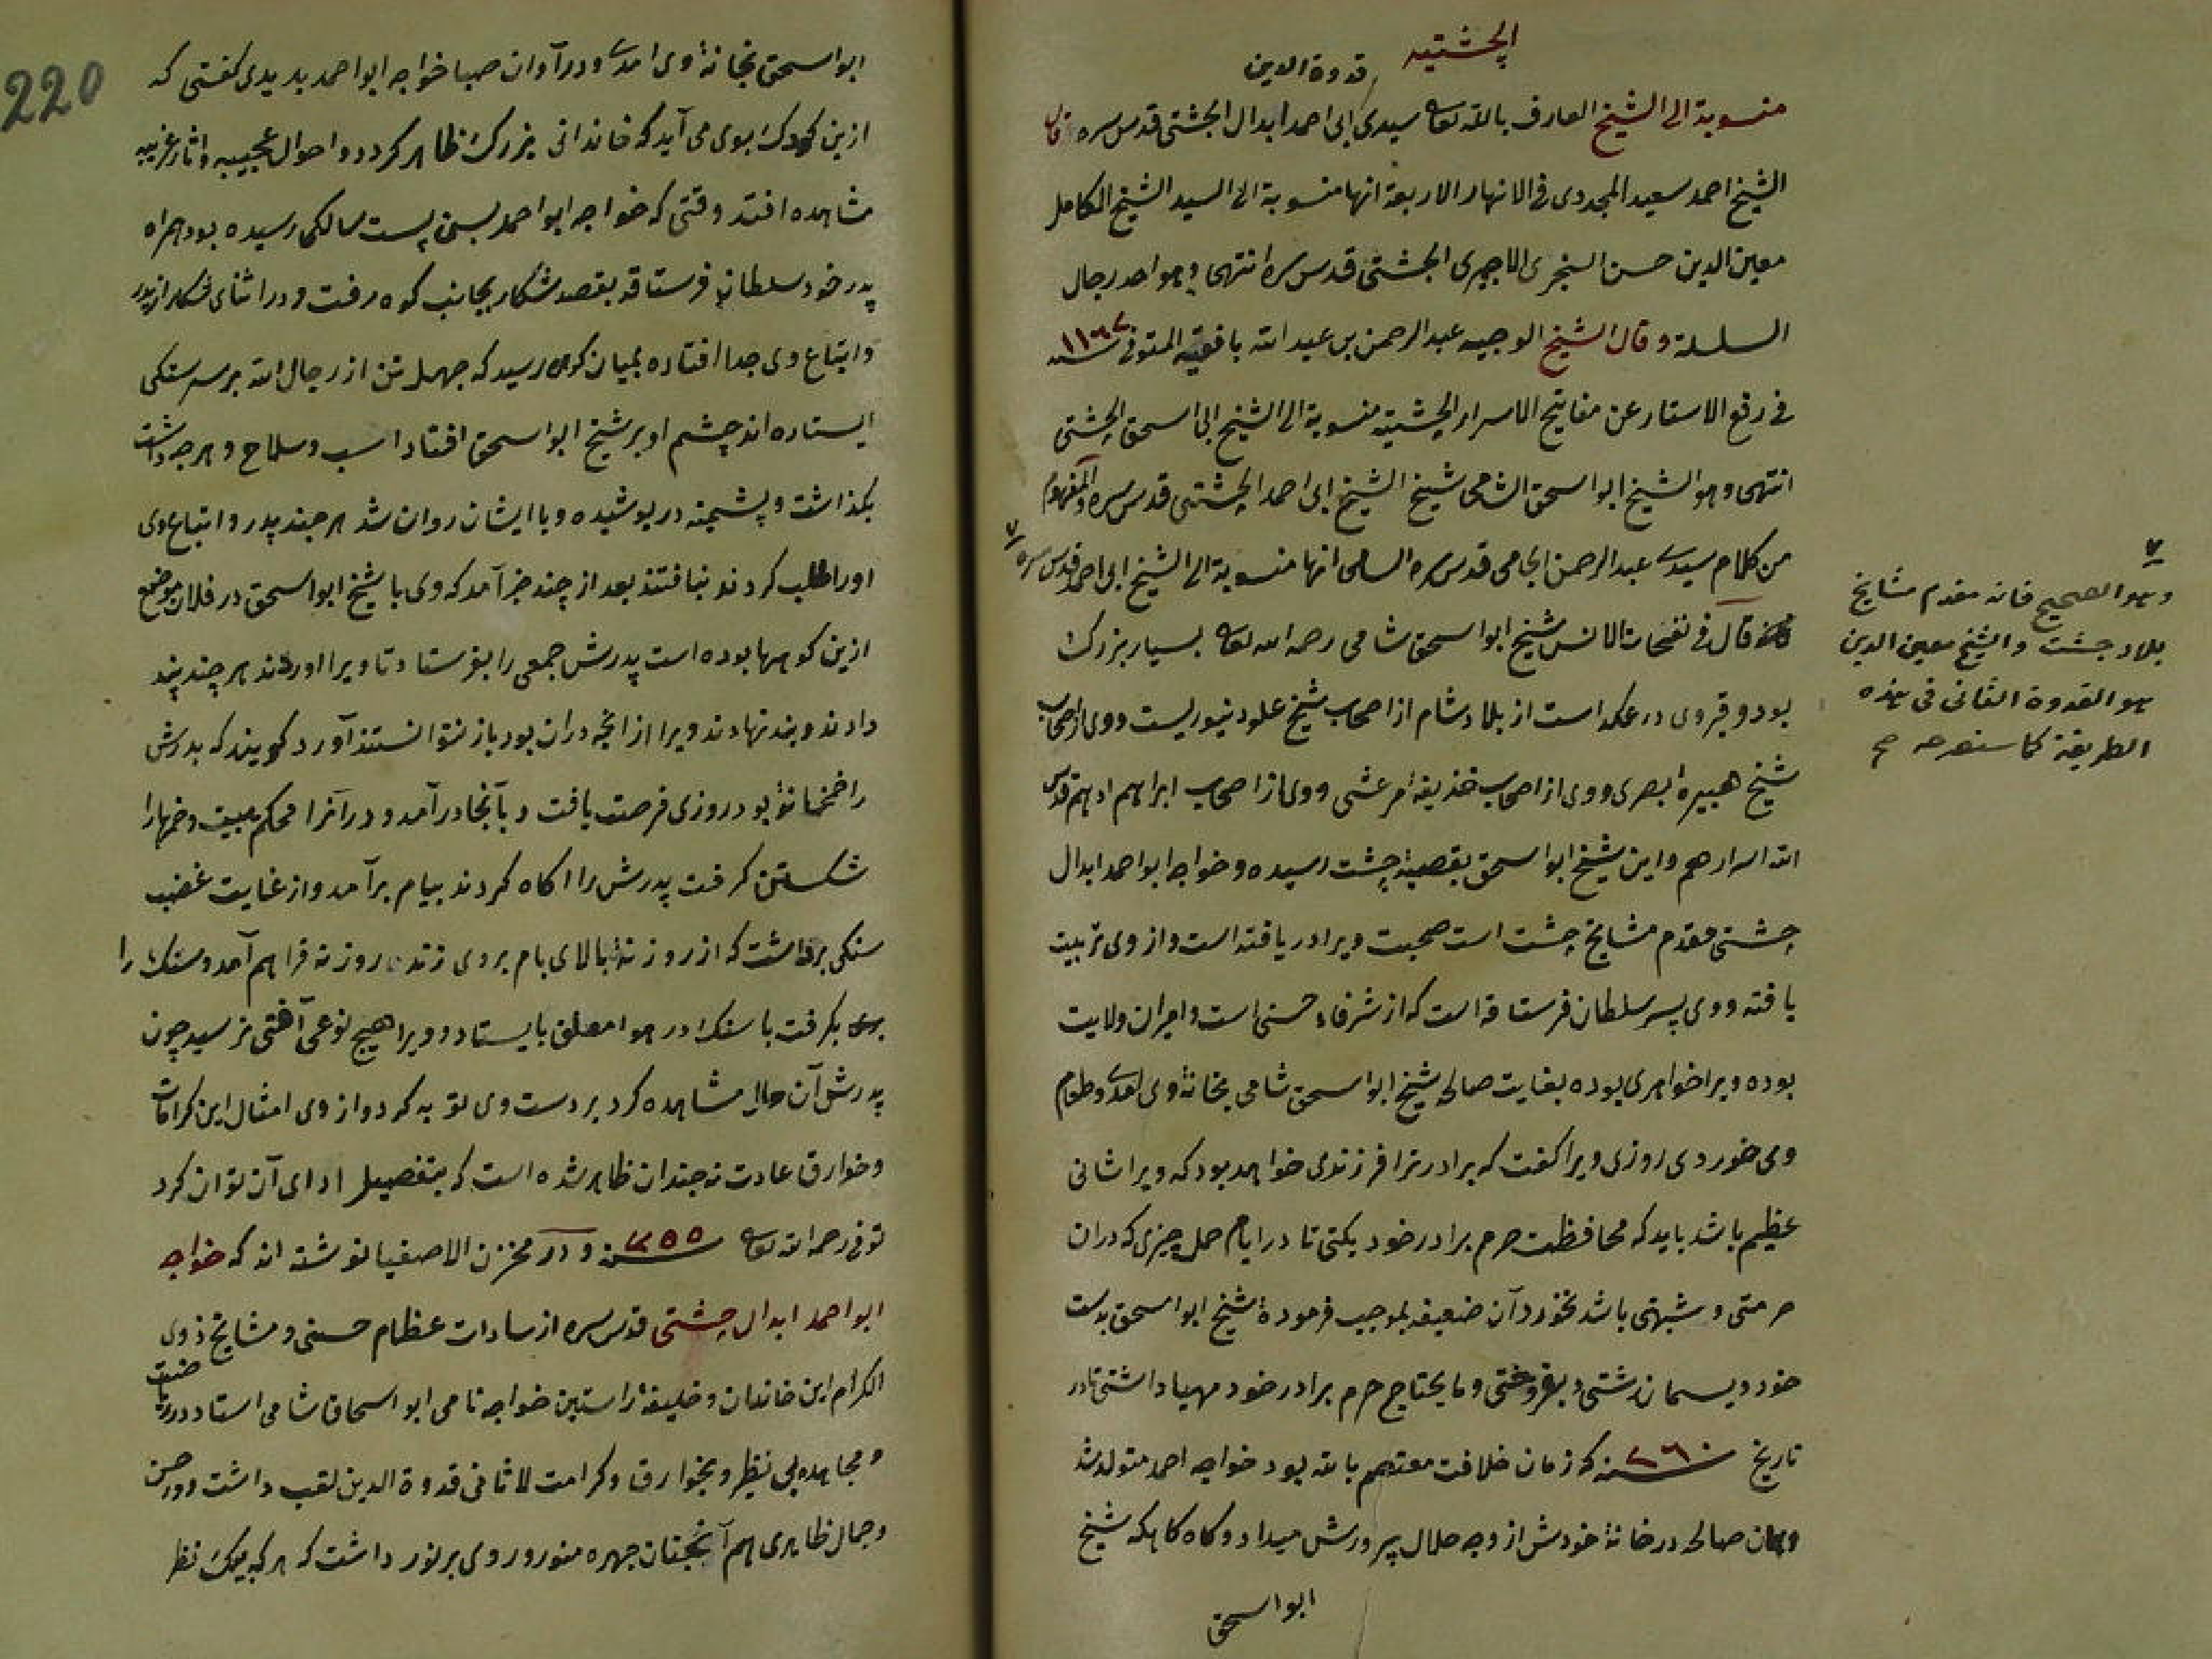 الچشتیه
قدوة الدین
منسوبة الی الشیخ العارف بالله تعالی سیدی ابی احمد ابدال الچشتی قدس سره قال
الشیخ احمد سعید المجددی فی الانهار الاربعة انها منسوبة الی السید الشیخ الکامل
معین الدین حسن السنجری الاجمیری الچشتی قدس سره انتهی وهو احد رجال
السلسلة وقال الشیخ الوجیه عبد الرحمن بن عبد الله بافقیه المتوفی سنه
فی رفع الاستار عن مفاتیح الاسرار الچشتیة منسوبة الی الشیخ ابی اسحق الچشتی
انتهی وهو الشیخ ابو اسحق الشامی شیخ الشیخ ابی احمد الچشتی قدس سره والمفهوم
من کلام سیدی عبد الرحمن الجامی قدس سره السامی انها منسوبة الی الشیخ ابی احمد قدس سره
قال فی نفحات الانس شیخ ابو اسحق شامی رحمه الله تعالی بسیار بزرک
بود و قبر وی در عکه است از بلاد شام از اصحاب شیخ علو دینوریست ووی از اصحاب
شیخ هبیرهٔ بصری ووی از اصحاب حذیفهٔ مرعشی ووی از اصحاب ابراهیم ادهم قدس
الله اسرارهم واین شیخ ابو اسحق بقصبهٔ چشت رسیده و خواجه ابو احمد ابدال
چشتی مقدم مشایخ چشت است صحبت ویرا دریافته است واز وی تربیت
یافته ووی پسر سلطان فرستافه است که از شرفاء حسنی است و امیران ولایت
بوده ویرا خواهری بوده بغایت صالحه شیخ ابو اسحق شامی بخانهٔ وی آمدی وطعام
وی خوردی روزی ویرا کفت که برادر ترا فرزندی خواهد بود که ویرا شانی
عظیم باشد باید که محافظت حرم برادر خود بکنی تا در ایام حمل چیزی که دران
حرمتی و شبهتی باشد نخورد آن ضعیفه بموجب فرمودهٔ شیخ ابو اسحق بدست
خود ریسمان رشتی و بفروختی وما یحتاج حرم برادر خود مهیا داشتی تا در
تاریخ سنه ۲۶۰ که زمان خلافت معتصم بالله بود خواجه احمد متولد شد
وهمان صالحه در خانهٔ خودش از وجه حلال پرورش میداد وکاه کاهکه شیخ
ابو اسحق
وهو الصحیح فانه مقدم مشایخ
بلاد چشت والشیخ معین الدین
هو القدوة الثانی فی هذه
الطریقة کما ستعرفه صح
220
ابو اسحق بخانهٔ وی امدی ودر آوان صبا خواجه ابو احمد بدیدی کفتی که
ازین کودک بوی می آید که خاندانی بزرک ظاهر کردد و احوال عجیبه واثار غریبه
مشاهده افتد وقتی که خواجه ابو احمد بسن بیست سالکی رسیده بود همراه
پدر خود سلطان فرستافه بقصد شکار بجانب کوه رفت و در اثنای شکار از پدر
واتباع وی جدا افتاده بمیان کوهی رسید که چهل تن از رجال الله بر سر سنکی
ایستاده اند چشم او بر شیخ ابو اسحق افتاد اسب و سلاح و هرچه داشت
بکذاشت و پشمینه در پوشیده وبا ایشان روان شد هر چند پدر و اتباع وی
اورا طلب کردند نیافتند بعد از چند خبر آمد که وی با شیخ ابو اسحق در فلان موضع
ازین کوهها بوده است پدرش جمعی را بفرستاد تا ویرا اوردند هر چند پند
دادند وبند نهادند ویرا از انچه دران بود باز نتوانستند آورد کویند که پدرش
را خمخانهٔ بود روزی فرصت یافت و بآنجا درآمد ودر آنرا محکم ببست وخمها را
شکستن کرفت پدرش را اکاه کردند ببام برآمد و از غایت غضب
سنکی برداشت که از روزنهٔ بالای بام بروی زند روزنه فراهم آمد و سنک را
بکرفت با سنک در هوا معلق بایستاد و ویرا هیچ نوعی آفتی نرسید چون
پدرش آن حال مشاهده کرد بر دست وی توبه کرد واز وی امثال این کرامات
وخوارق عادت نه چندان ظاهر شده است که بتفصیل ادای آن توان کرد
توفی رحمه الله تعالی سنه ۳۵۵ ودر مخزن الاصفیا نوشته اند که خواجه
ابو احمد ابدال چشتی قدس سره از سادات عظام حسنی و مشایخ ذوی
الکرام این خاندان وخلیفهٔ راستین خواجه نامی ابو اسحاق شامی استاد در ریاضت
ومجاهده بی نظیر وبخوارق وکرامت لاثانی قدوة الدین لقب داشت ودر حسن
وجمال ظاهری هم آنچنان چهره منور وروی پر نور داشت که هر که بیک نظر